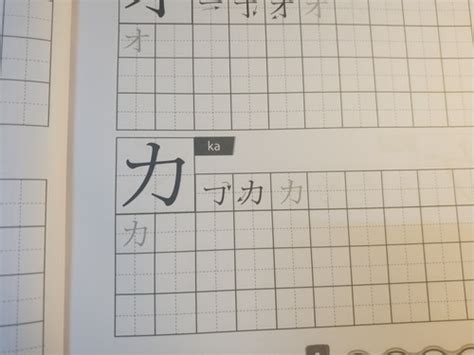 オ オ オ
オ
ka
カ フ カ カ
カ